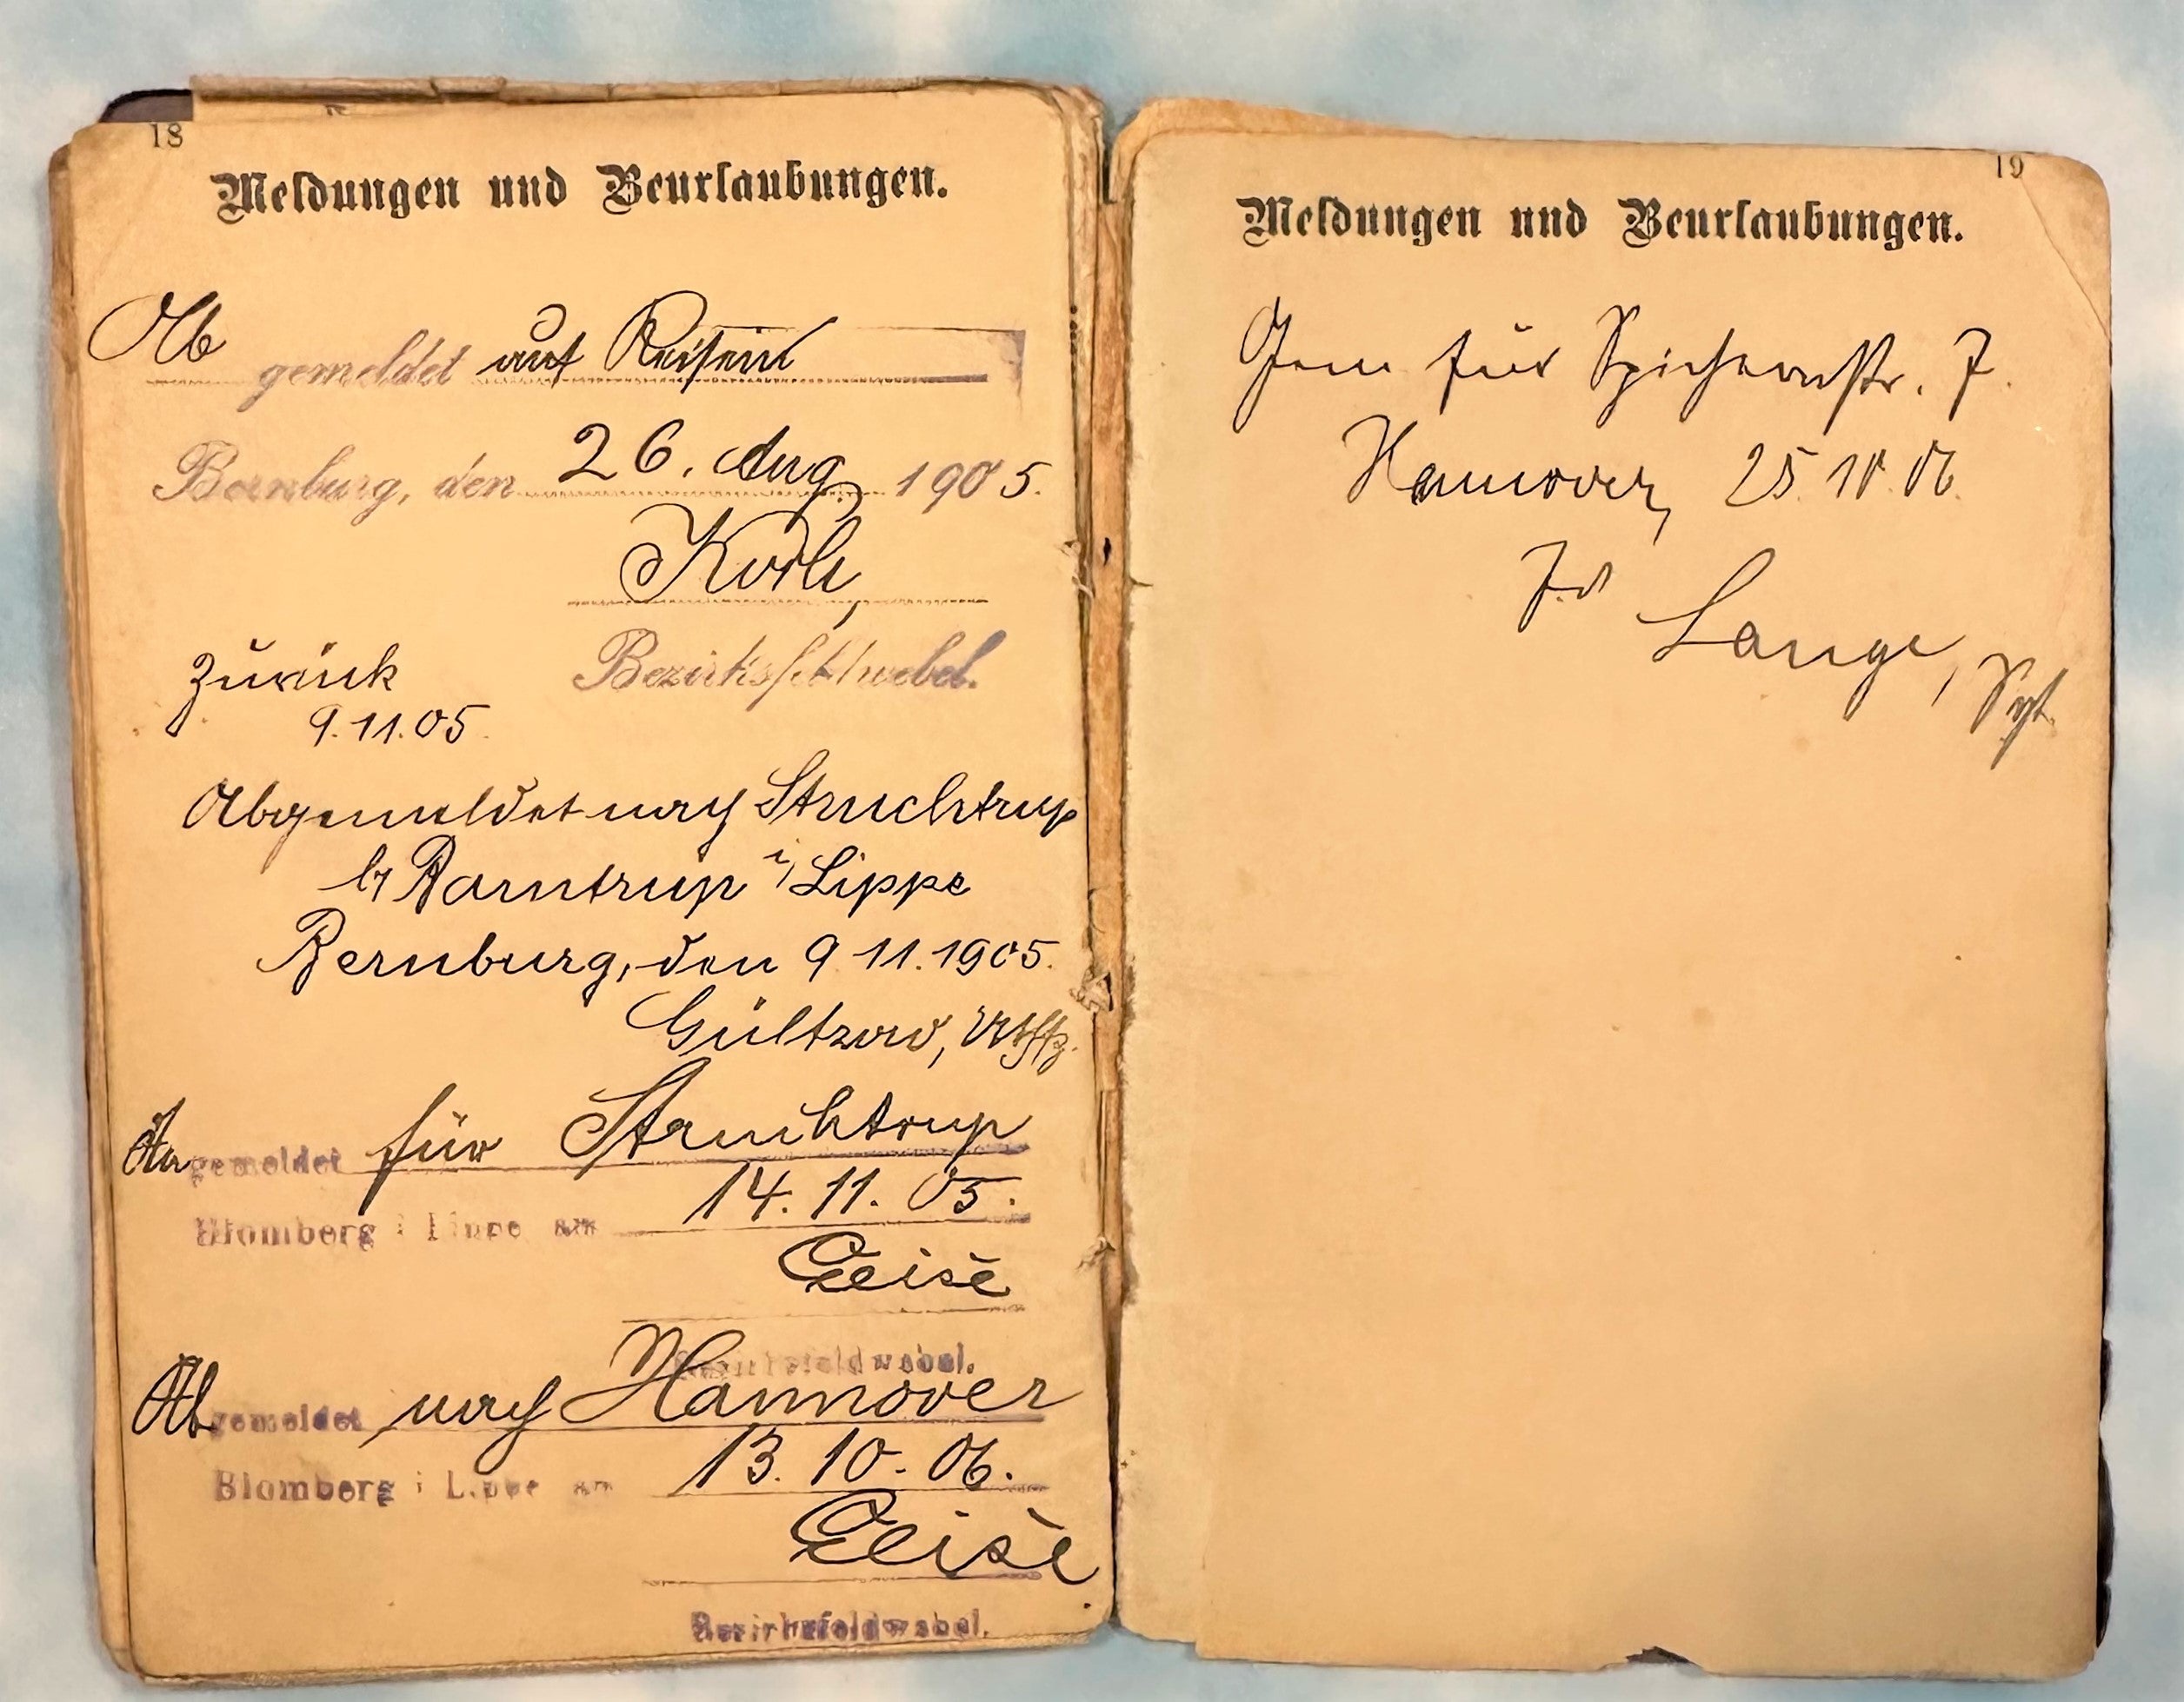 18
Meldungen und Beurlaubungen.
Ab gemeldet auf Reisen
Bernburg, den 26. Aug. 1905.
Bezirksfeldwebel.
Zurück
9.11.05.
Abgemeldet nach Struchtrup
b/ Barntrup i/Lippe
Bernburg, den 9.11.1905.
Gültzow, Utffz.
Angemeldet für Struchtrup
Blomberg i Lippe am 14. 11. 05.
Geise
Bezirksfeldwebel.
Abgemeldet nach Hannover
Blomberg i Lippe am 13. 10. 06.
Geise
Bezirksfeldwebel.
19
Meldungen und Beurlaubungen.
Gem für Spichernstr. 7.
Hannover, 25. 10. 06.
Lange, Sgt.